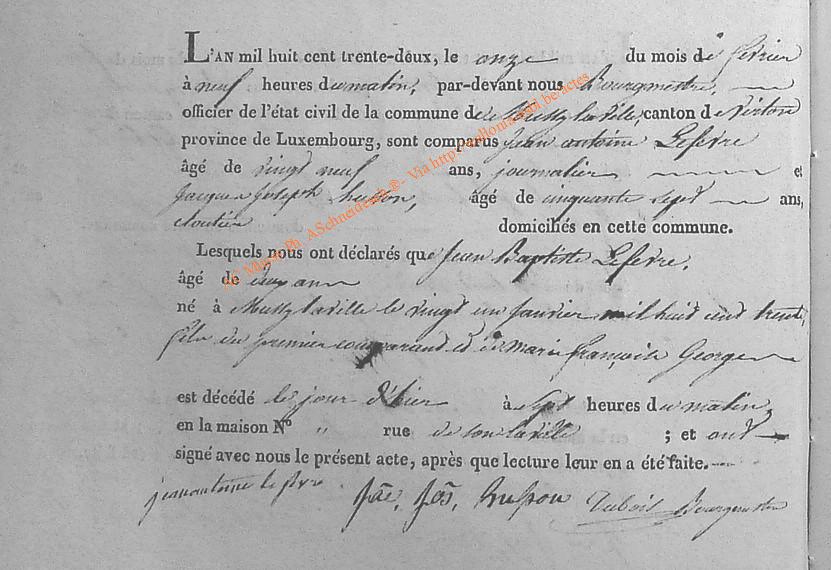 L'AN mil huit cent trente-deux, le onze du mois de février
à neuf heures du matin, par-devant nous Bourgmestre,
officier de l'état civil de la commune de Mussy la ville, canton de Virton
province de Luxembourg, sont comparus Jean antoine Lefevre
âgé de vingt neuf ans, journalier et
Jacques Joseph husson, âgé de cinquante sept ans,
cloutier domiciliés en cette commune.
Lesquels nous ont déclarés que Jean Baptiste Lefevre,
âgé de deux ans
né à Mussy la ville le vingt un janvier mil huit cent trente,
fils du premier comparant et de marie françoise George
est décédé le jour d'hier à sept heures du matin,
en la maison N° " rue de la ville ; et ont
signé avec nous le présent acte, après que lecture leur en a été faite.
jean antoine le fevre Jos. husson Dubois Bourgmestre